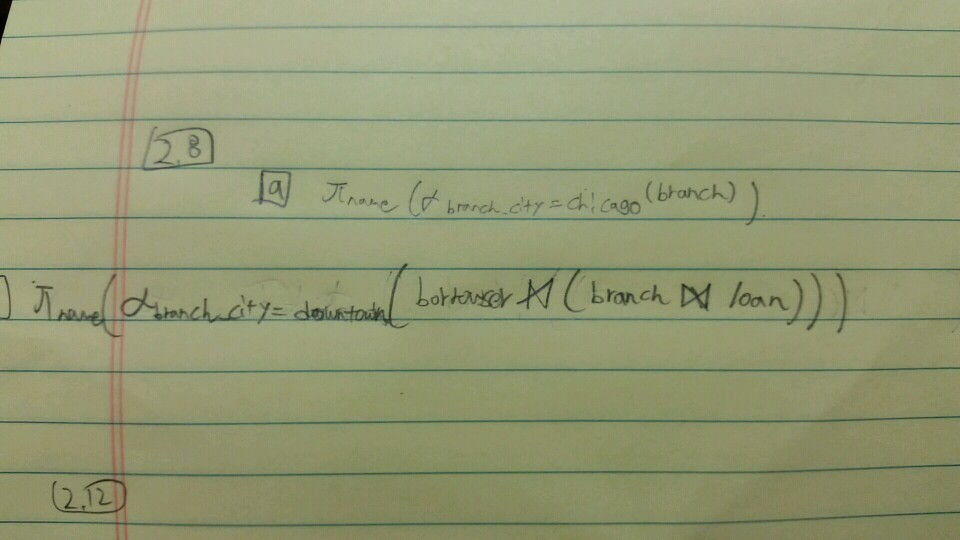 2.8
a π name (α branch_city = chicago (branch)).
) π name (α branch_city = downtown (borrower ⋈ (branch ⋈ loan)))
2.12